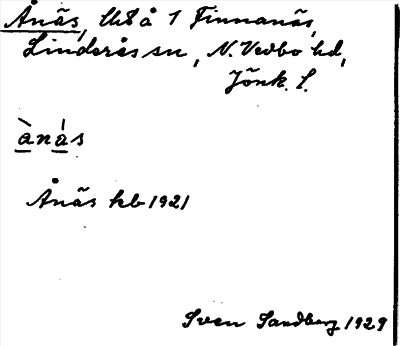 Ånäs, Utå 1 Finnanäs,
Linderås sn, N. Vedbo hd,
Jönk. l.
ànás
Ånäs kb 1921
Sven Sandberg 1929